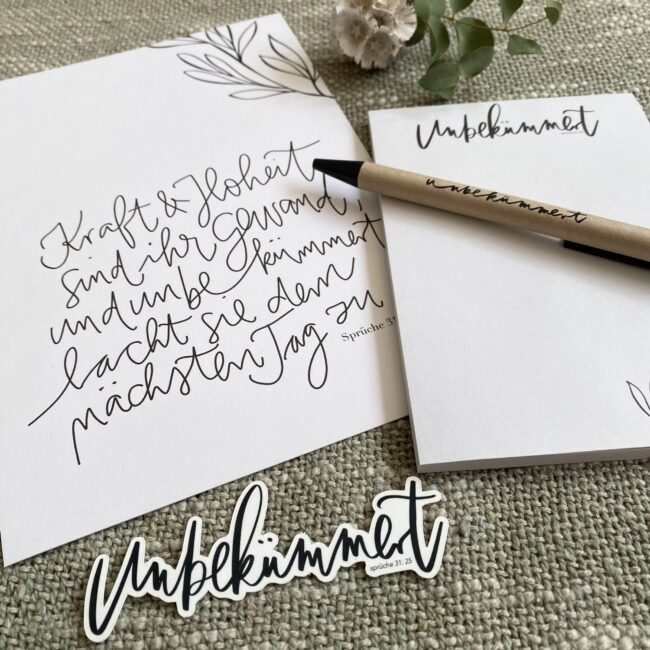 Kraft & Hoheit
sind ihr Gewand,
und unbekümmert
lacht sie dem
nächsten Tag zu
Sprüche 31
Unbekümmert
unbekümmert
Unbekümmert
sprüche 31:25